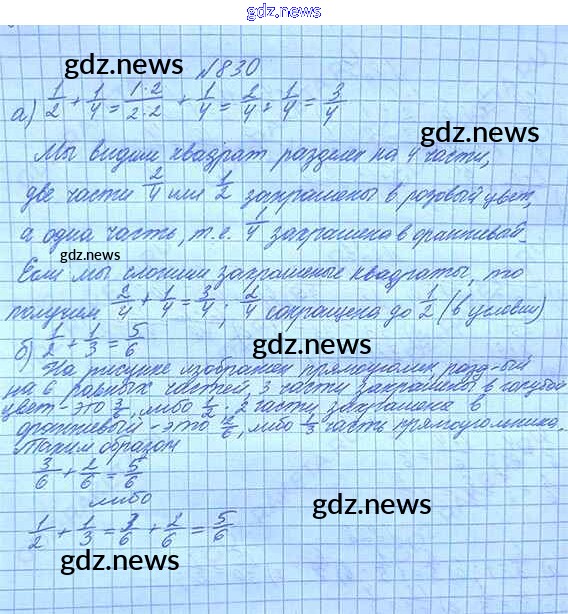 gdz.news
gdz.news
№830
а) 1/2 + 1/4 = 1·2/2·2 + 1/4 = 2/4 + 1/4 = 3/4
gdz.news
Мы видим квадрат разделен на 4 части,
две части 2/4 или 1/2 закрашены в розовый цвет,
а одна часть, т.е. 1/4 закрашена в оранжевый.
gdz.news
Если мы сложим закрашеные квадраты, то
получим 2/4 + 1/4 = 3/4; 2/4 сокращена до 1/2 (в условии)
б) 1/2 + 1/3 = 5/6
На рисунке изображен прямоугольник разд-ый
на 6 равных частей, 3 части закрашены в голубой
цвет - это 3/6, либо 1/2; 2 части закрашена в
оранжевый - это 2/6, либо 1/3 часть прямоугольника.
Таким образом
3/6 + 2/6 = 5/6
либо
gdz.news
1/2 + 1/3 = 3/6 + 2/6 = 5/6
gdz.news